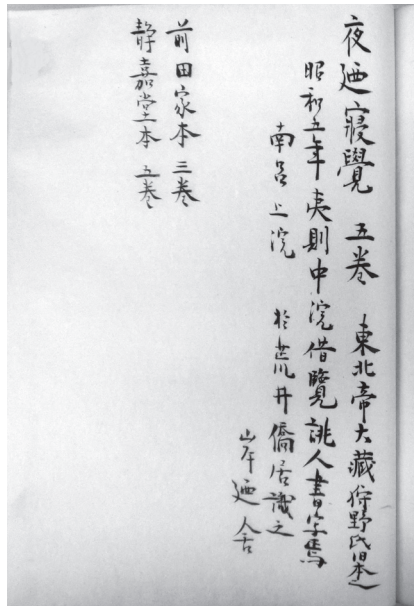 夜廼寢覺 五巻 東北帝大藏狩野氏旧本
昭和五年夷則中浣借覽誂人書写焉
南呂上浣 於荒井僑居識之
岸廼舎
前田家本 三巻
靜嘉堂本 五巻